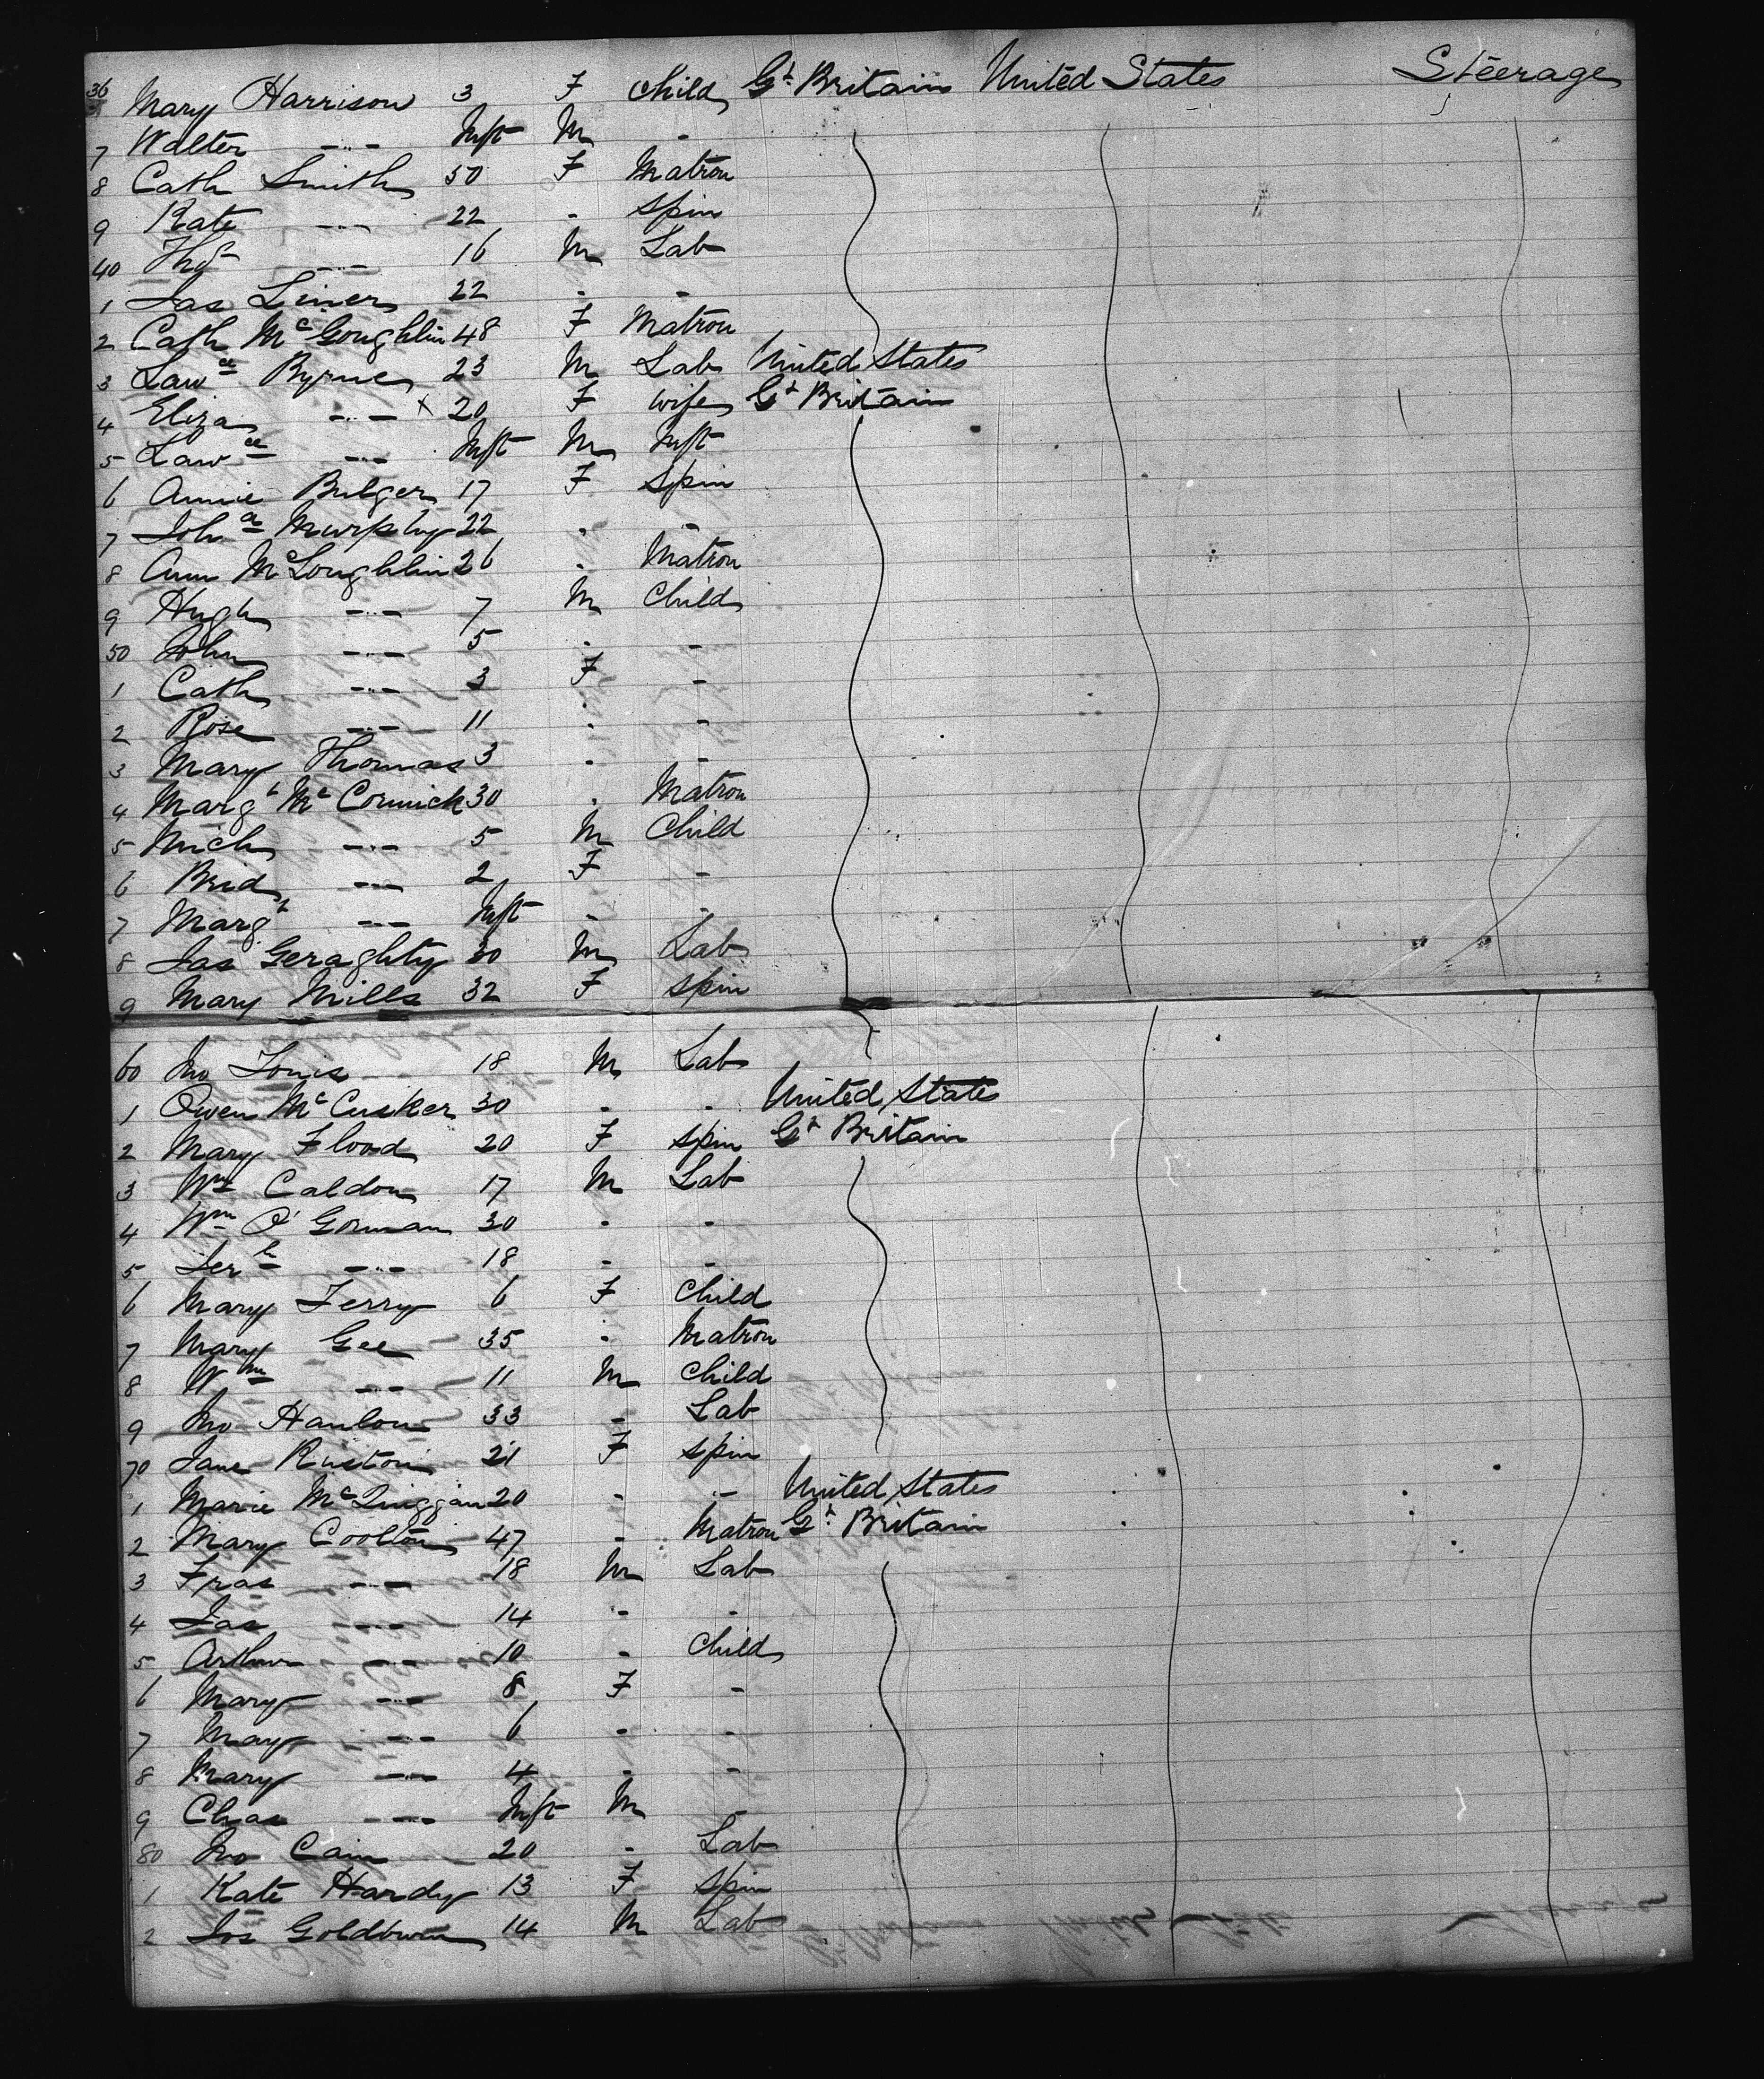 36 Mary Harrison 3 F Child Gt Britain United States Steerage
7 Walter -"- Inft M -
8 Cath Smith 50 F Matron
9 Kate -"- 22 - Spin
40 Thos -"- 16 M Lab
1 Jas Liner 22 - -
2 Cath McGoughlin 48 F Matron
3 Lawce Byrne 23 M Lab United States
4 Eliza -"- x 20 F Wife Gt Britain
5 Lawce -"- Inft M Inft
6 Annie Bulger 17 F Spin
7 Joha Murphy 22 - -
8 Ann McLoughlin 26 - Matron
9 Hugh -"- 7 M Child
50 John -"- 5 - -
1 Cath -"- 3 F -
2 Rose -"- 11 - -
3 Mary Thomas 3 - -
4 Margt McCormick 30 - Matron
5 Mich -"- 5 M Child
6 Brid -"- 2 F -
7 Margt -"- Inft - -
8 Jas Geraghty 30 M Lab
9 Mary Mills 32 F Spin
60 Jno Louis 18 M Lab
1 Owen McCusker 30 - - United States
2 Mary Flood 20 F Spin Gt Britain
3 Wm Caldon 17 M Lab
4 Wm O'Gorman 30 - -
5 Jerh -"- 18 - -
6 Mary Terry 6 F Child
7 Mary Gee 35 - Matron
8 Wm -"- 11 M Child
9 Jno Hanlon 33 - Lab
70 Jane 21 F Spin
1 Marie McQuiggan 20 - - United States
2 Mary Coolton 47 - Matron Gt Britain
3 Fras -"- 18 M Lab
4 Jas -"- 14 - -
5 Arthur -"- 10 - Child
6 Mary -"- 8 F -
7 May -"- 6 - -
8 Mary -"- 4 - -
9 Chas -"- Inft M -
80 Jno Cain 20 - Lab
1 Kate Hardy 13 F Spin
2 Jos Goldbwin 14 M Lab